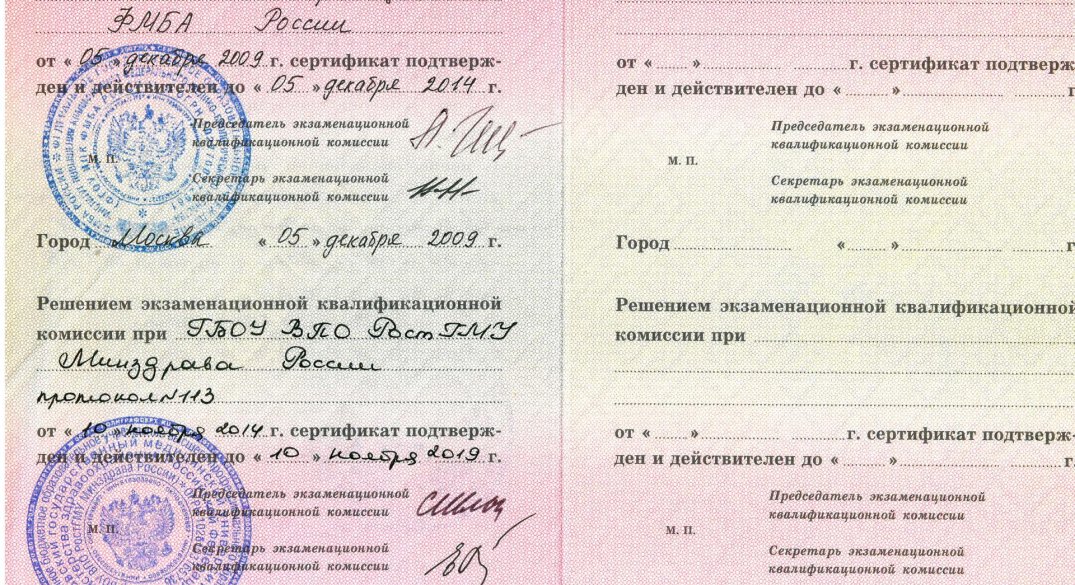 ФМБА России
от « 05 » декабря 2009 г. сертификат подтверж-
ден и действителен до « 05 » декабря 2014 г.
Председатель экзаменационной
квалификационной комиссии
М. П.
Секретарь экзаменационной
квалификационной комиссии
Город Москва « 05 » декабря 2009 г.
Решением экзаменационной квалификационной
комиссии при ГБОУ ВПО РостГМУ
Минздрава России
протокол №113
от « 10 » ноября 2014 г. сертификат подтверж-
ден и действителен до « 10 » ноября 2019 г.
Председатель экзаменационной
квалификационной комиссии
М. П.
Секретарь экзаменационной
квалификационной комиссии
от « » г. сертификат подтверж
ден и действителен до « » г
Председатель экзаменационной
квалификационной комиссии
М. П.
Секретарь экзаменационной
квалификационной комиссии
Город « » г
Решением экзаменационной квалификационной
комиссии при
от « » г. сертификат подтверж-
ден и действителен до « » г.
Председатель экзаменационной
квалификационной комиссии
М. П.
Секретарь экзаменационной
квалификационной комиссии